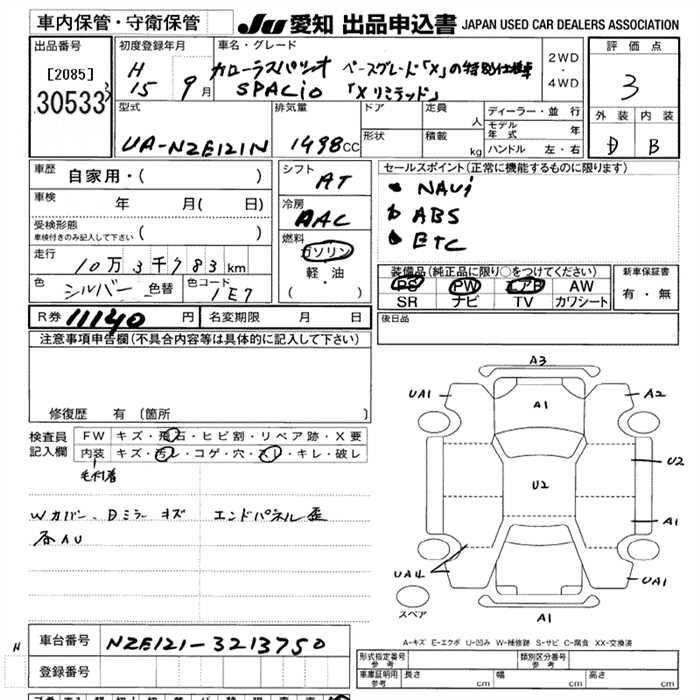 車内保管・守衛保管
JU 愛知 出品申込書 JAPAN USED CAR DEALERS ASSOCIATION
出品番号
[2085]
30533
初度登録年月
H
15 9月
車名・グレード
カローラスパシオ ベースグレード「X」の特別仕様車
SPACio 「Xリミテッド」
2WD
・
4WD
評価点
3
外装 内装
D B
型式
UA-NZE121N
排気量
1498cc
ドア
形状
定員
人
積載
kg
ディーラー・並行
モデル年式 年
ハンドル 左・右
車歴 自家用・( )
車検 年 月( 日)
受検形態
車検付きのみ記入して下さい ( )
走行 10万3千783km
色 シルバー 色替 色コード 1E7
シフト
AT
冷房
AAC
燃料
ガソリン
軽・油
( )
セールスポイント(正常に機能するものに限ります)
NAVi
ABS
ETC
装備品(純正品に限り○をつけてください)
PS PW エアB AW
SR ナビ TV カワシート
新車保証書
有・無
R券 11140 円 名変期限 月 日
後日品
注意事項申告欄(不具合内容等は具体的に記入して下さい)
修復歴 有(箇所 )
検査員記入欄
FW キズ・飛石・ヒビ割・リペア跡・X要
内装 キズ・汚レ・コゲ・穴・スレ・キレ・破レ
毛付着
Wカバー、Dミラー キズ エンドパネル歪
各AU
A3
UA1
A1
A2
U2
U2
A1
UA4
UA1
スペア
A1
A-キズ E-エクボ U-凹み W-補修跡 S-サビ C-腐食 XX-交換済
N
車台番号 NZE121-3213750
登録番号
形式指定番号 参考
類別区分番号 参考
車庫証明用 参考 長さ cm 幅 cm 高さ cm